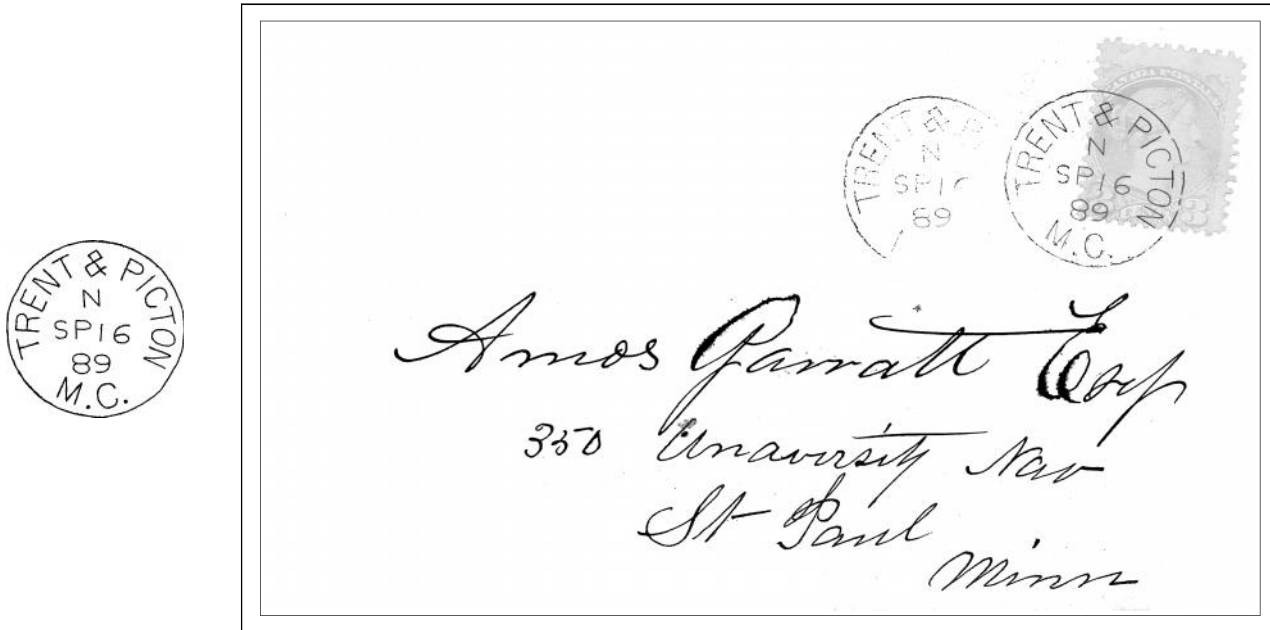 TRENT & PICTON
N
SP16
89
M.C.
TRENT & P
N
SP1
89
TRENT & PICTON
N
SP16
89
M.C.
CANADA POSTAGE
3
Amos Garratt Esq
350 Unaversity Nav
St Paul
Minn